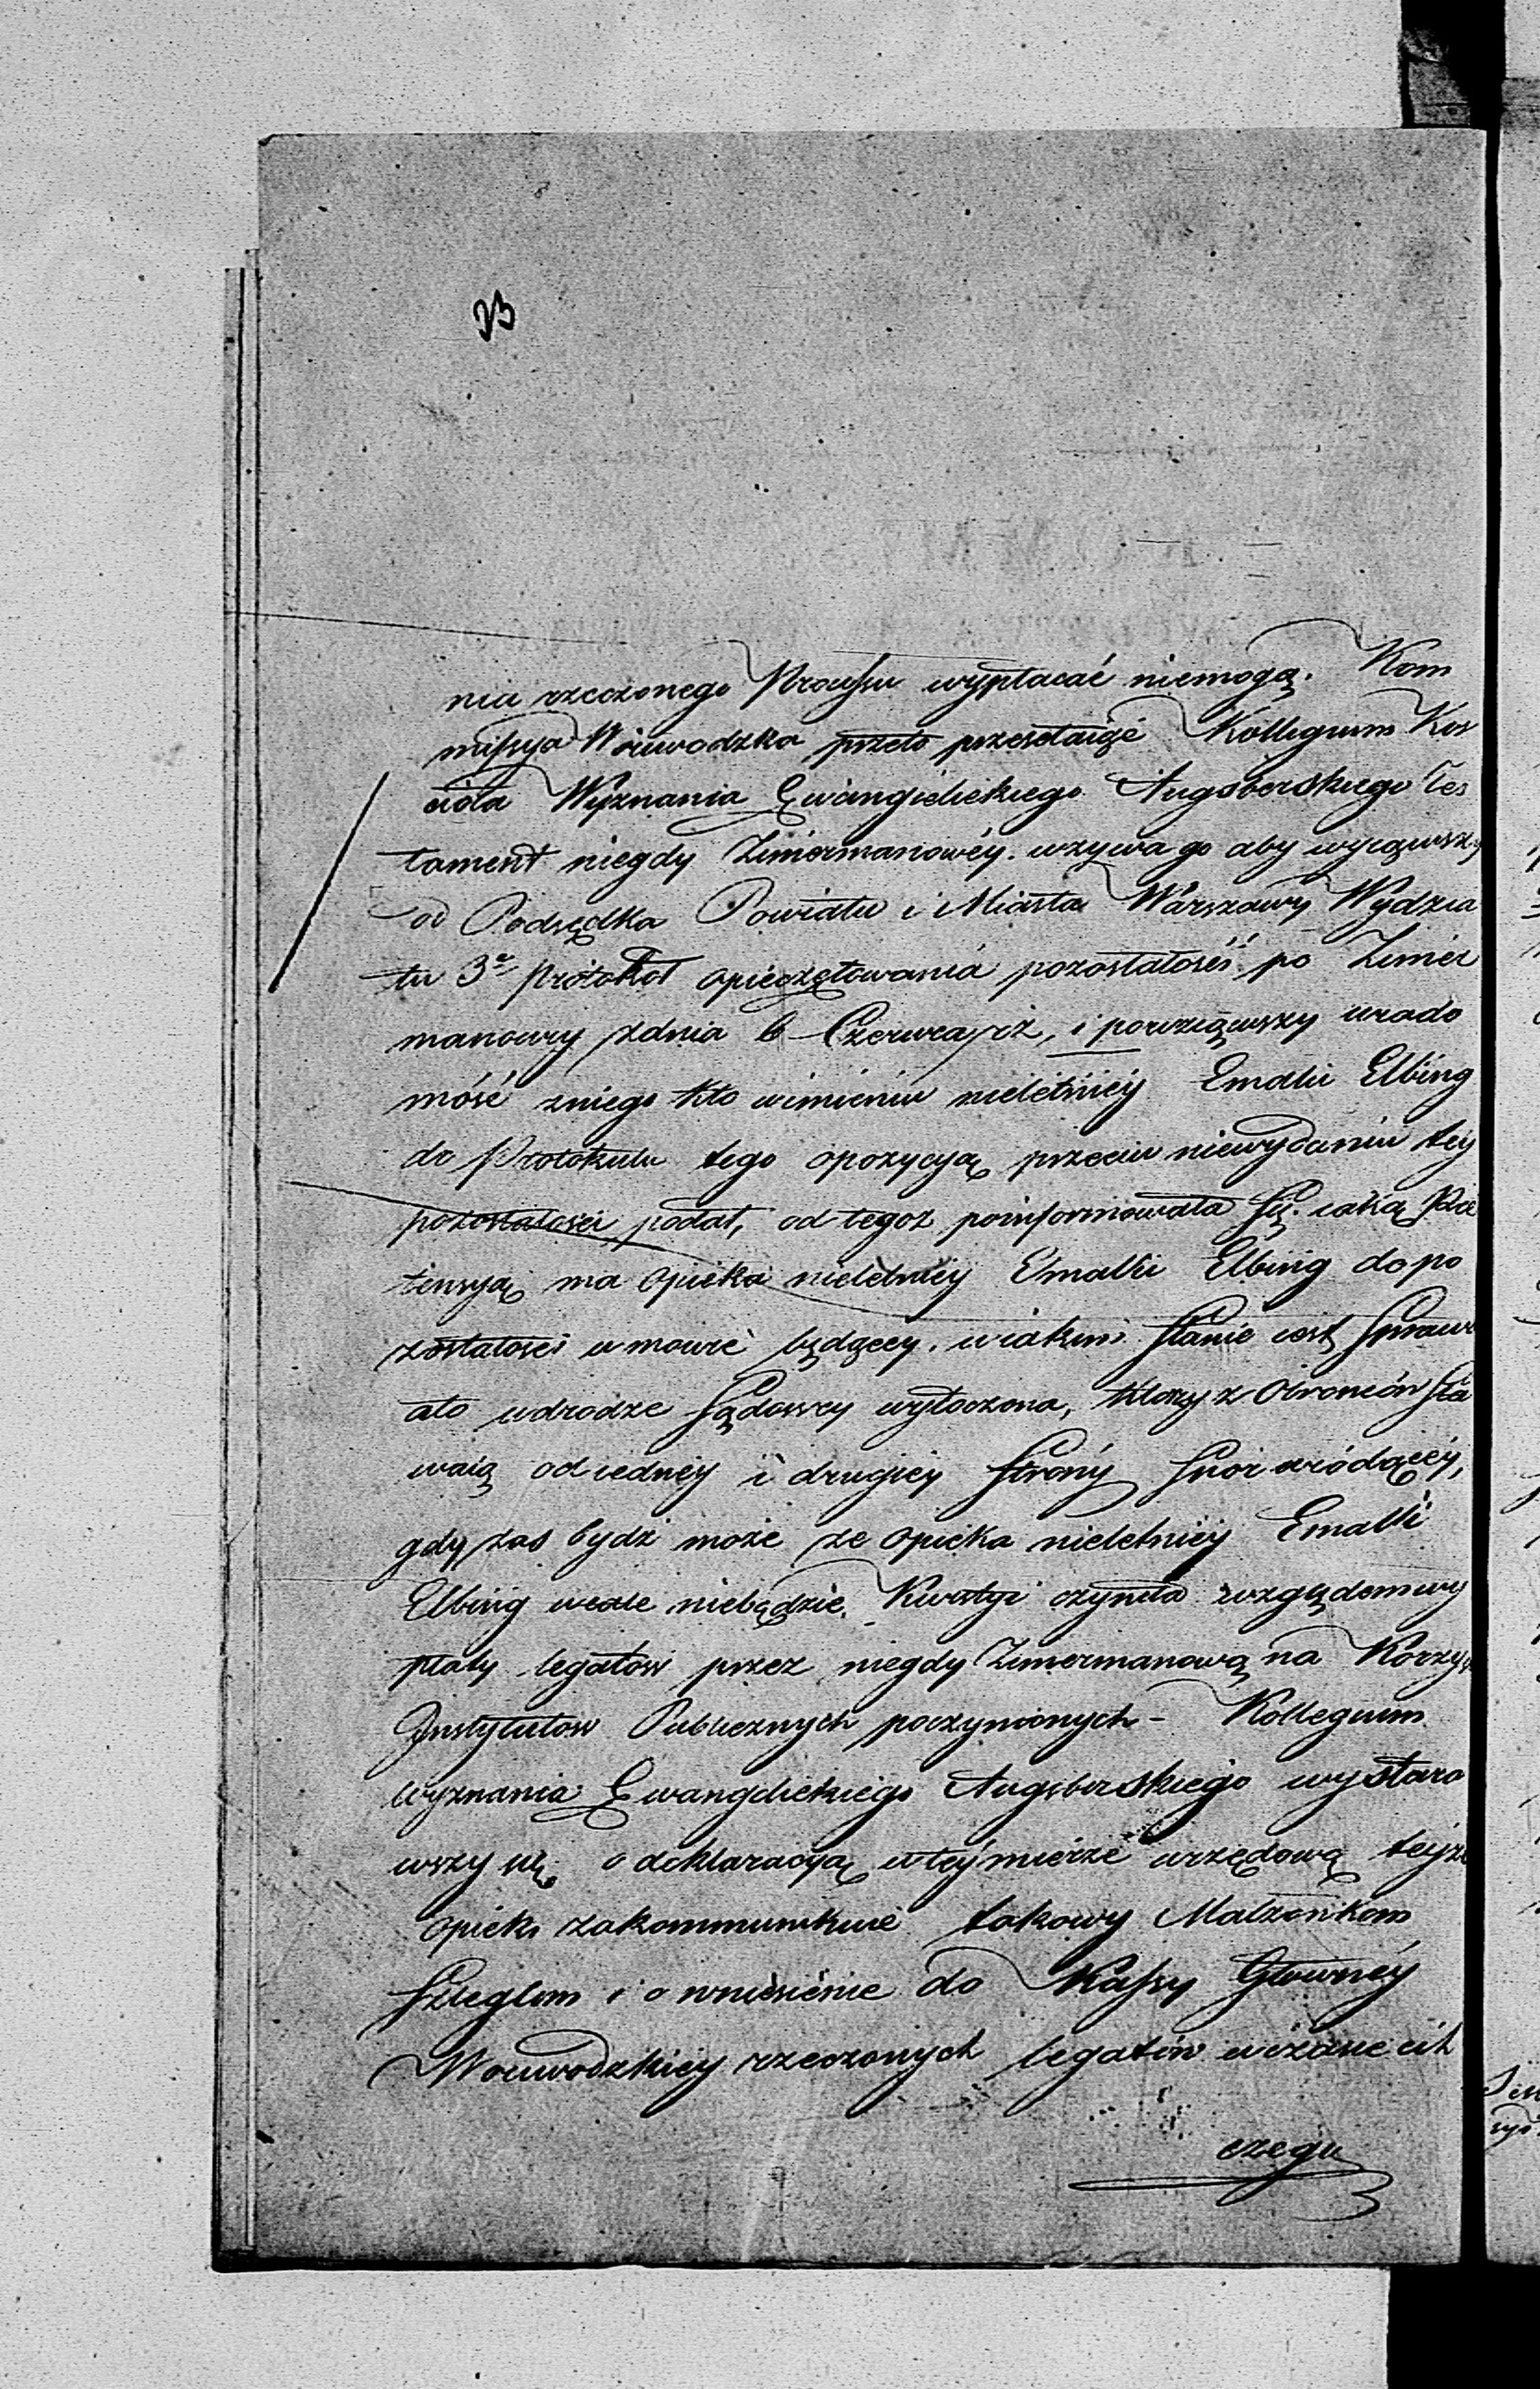 23
nia rzeczonego Processu wypłacać niemogą. Kom
missya Woiewodzka przeto przesełaiąc Kollegium Koś
cioła Wyznania Ewangielickiego Augsberskiego Tes
tament niegdy Zimermanowéy. wzywa go aby wyiąwszy
od Podsędka Powiatu i Miasta Warszawy Wydzia
łu 3º Protokoł opieczętowania pozostałości po Zimer
manowey zdnia 6 Czerwca rż, i powziąwszy wiado
mość zniego kto wimieniu nieletniéy Emalii Elbing
do Protokułu tego opozycyą przeciw niewydaniu téy
pozostałości podał, od tegoż poinformowała się. iaką Pre
tensyą ma opieka nieletniéy Emalii Elbing do po
zostałości w mowie będącey. wiakim stanie iest sprawa
ato wdrodze sądowey wytoczona, którzy z Obrońców sta
waią od iednéy i drugiéy strony spór wiódącéy,
gdy zas bydź może że opieka nieletniéy Emalii
Elbing wcale niebędzie Kwestyi czyniła względem wy
płaty legatów przez niegdy Zimermanową na Korzyś
Instytutow Publicznych poczynionych - Kollegium
Wyznania Ewangelickiego Augsberskiego wystara
wszy się o deklaracyą wtéy mierze urzędową teyże
opieki zakommunikuie takowy Małżonkom
Szleglom i o wniesienie do Kassy Głównéy
Woiewodzkiéy rzeczonych legatów wezwie ich
czego